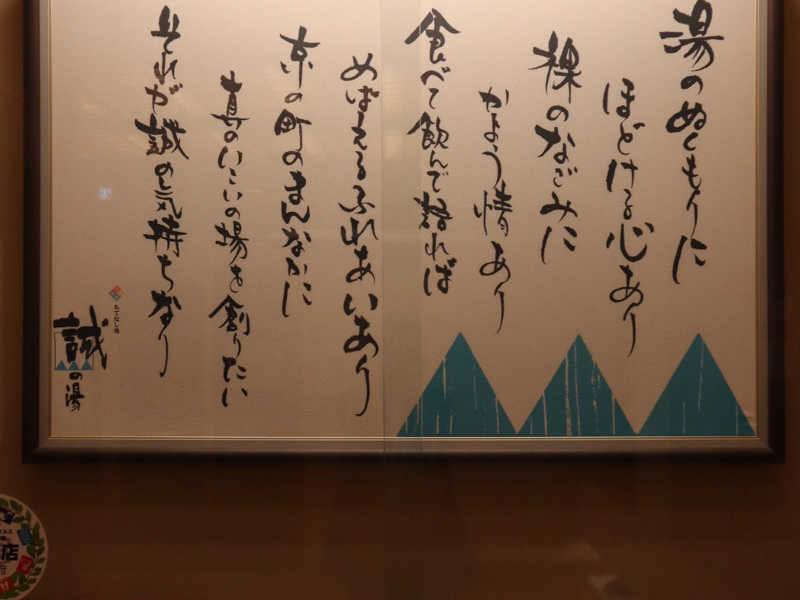 湯のぬくもりに
ほどける心あり
裸のなごみに
かよう情あり
食べて飲んで語れば
めばえるふれあいあり
京の町のまんなかに
真のいこいの場を創りたい
それが誠の気持ちなり
もてなし処
誠の湯
店